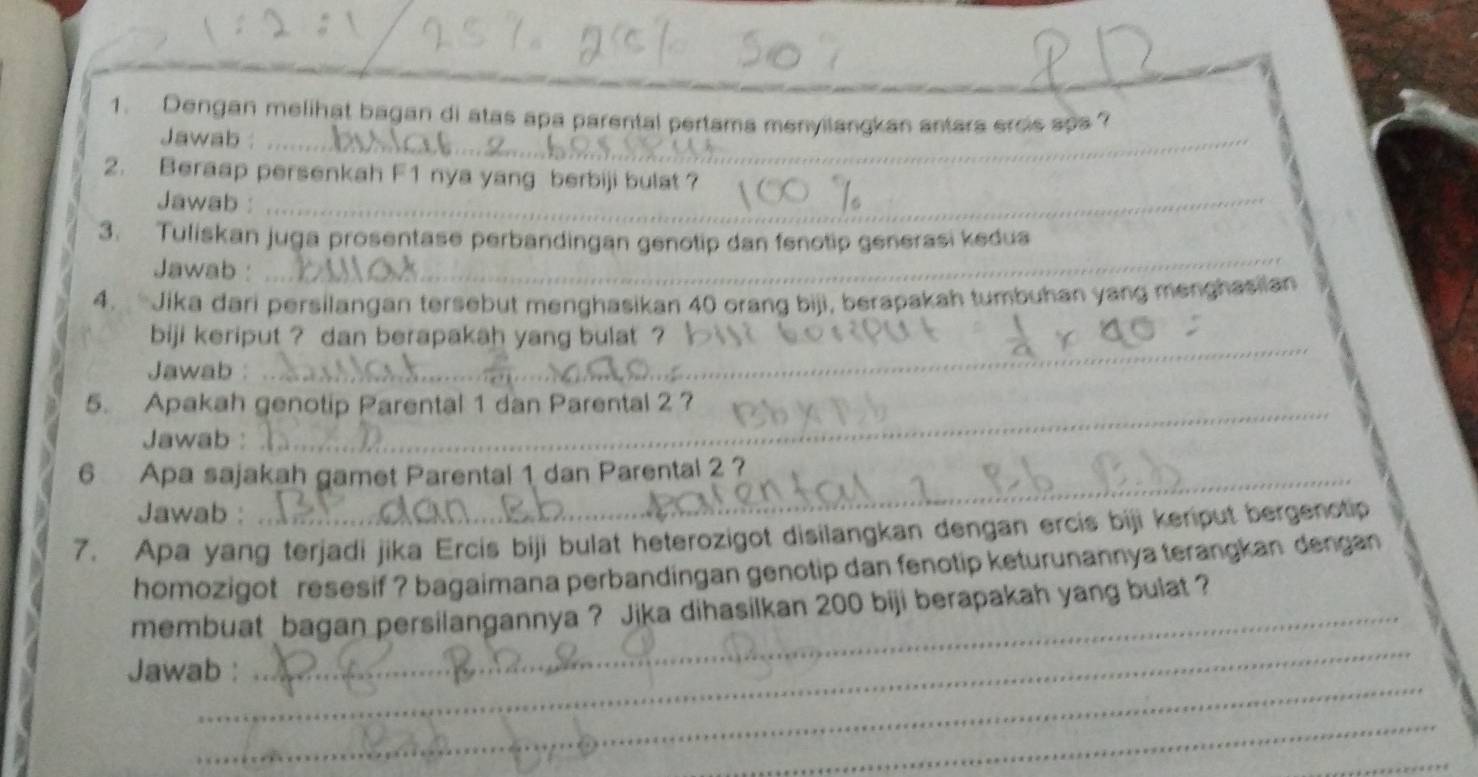 1:2:1/25% 25% 50%
1. Dengan melihat bagan di atas apa parental pertama menyilangkan antara ercis apa ?
Jawab : bulat & berkeput
2. Beraap persenkah F1 nya yang berbiji bulat ?
100 %
Jawab :
3. Tuliskan juga prosentase perbandingan genotip dan fenotip generasi kedua
Jawab : bulat
4. Jika dari persilangan tersebut menghasikan 40 orang biji, berapakah tumbuhan yang menghasilan
biji keriput ? dan berapakah yang bulat ? biji
Jawab : bullat
5. Apakah genotip Parental 1 dan Parental 2 ? Bb x Bb
Jawab :
6 Apa sajakah gamet Parental 1 dan Parental 2 ?
Jawab : dan Bb parental 2 B,b B,b
7. Apa yang terjadi jika Ercis biji bulat heterozigot disilangkan dengan ercis biji keriput bergenotip
homozigot resesif ? bagaimana perbandingan genotip dan fenotip keturunannya terangkan dengan
membuat bagan persilangannya ? Jika dihasilkan 200 biji berapakah yang bulat ?
Jawab :